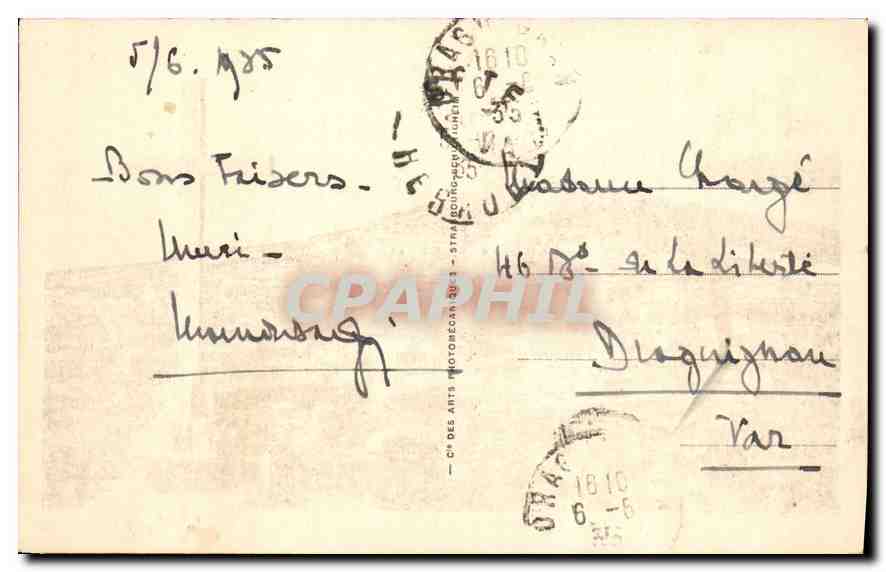 5/6. 1935
Bons Baisers -
Merci -
Madame Chargé
46 Bd - de la Liberté
Draguignan
Var
— Cie DES ARTS PHOTOMÉCANIQUES - STRASBOURG-SCHILTIGHEIM
16 10
6
35
DRAG
16 10
6 -6
35
CPAPHIL